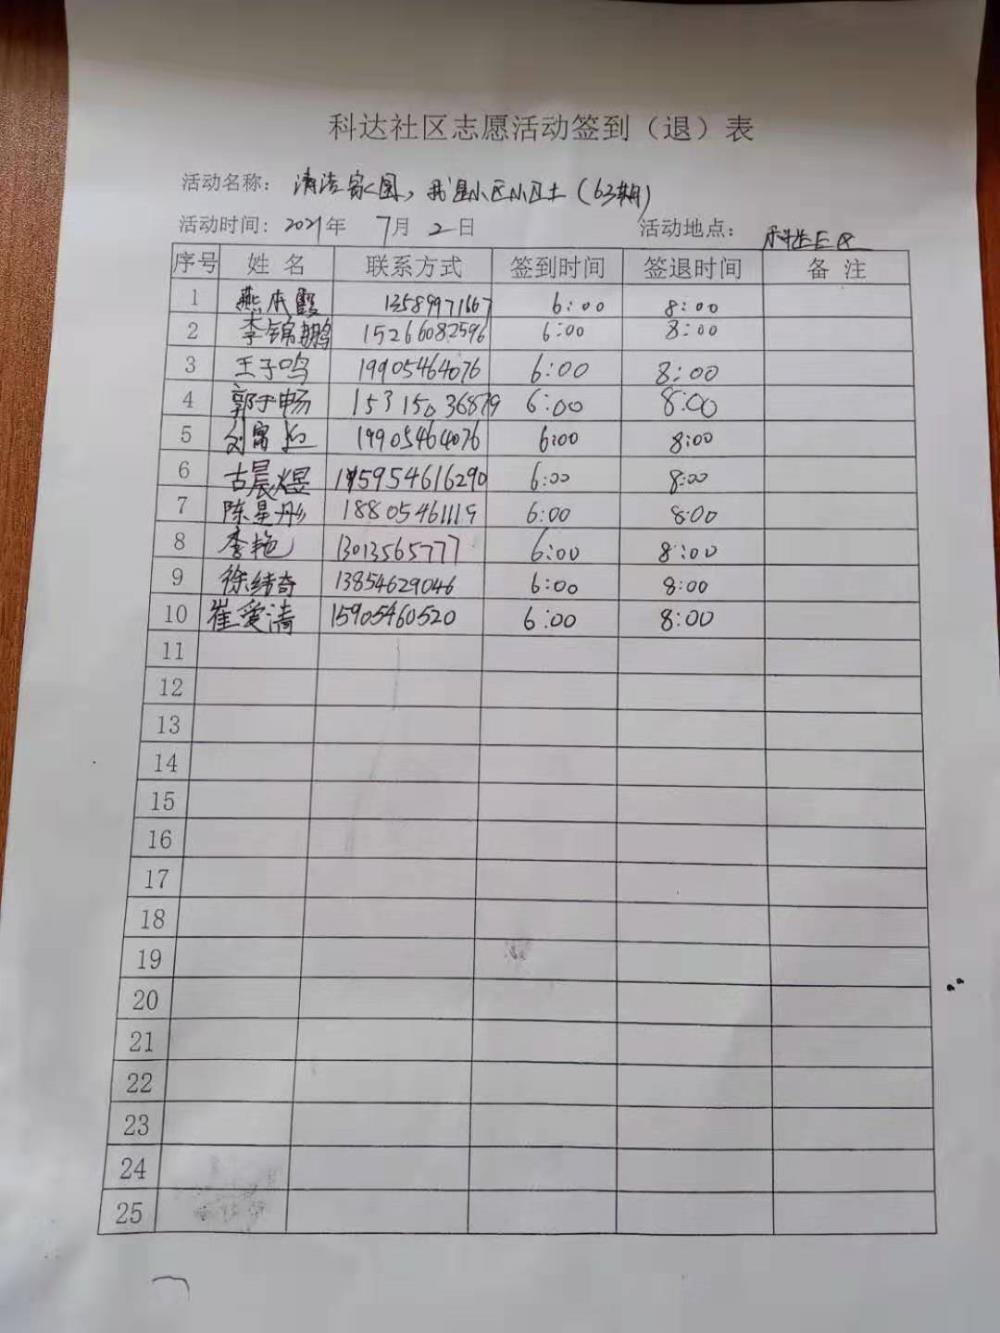 科达社区志愿活动签到（退）表
活动名称：清洁家园，我是小区小卫士（63期）
活动时间：2021年 7月 2日 活动地点：科达社区
序号 姓名 联系方式 签到时间 签退时间 备注
1 燕 霞 13589971667 6:00 8:00
2 李锦鹏 15266082596 6:00 8:00
3 王子鸣 19905464076 6:00 8:00
4 郭于畅 15315036879 6:00 8:00
5 刘富 19905464076 6:00 8:00
6 古晨煜 15954616290 6:00 8:00
7 陈星彤 18805461119 6:00 8:00
8 李艳 13013565777 6:00 8:00
9 徐绮奇 13854629046 6:00 8:00
10 崔爱清 15905460520 6:00 8:00
11
12
13
14
15
16
17
18
19
20
21
22
23
24
25